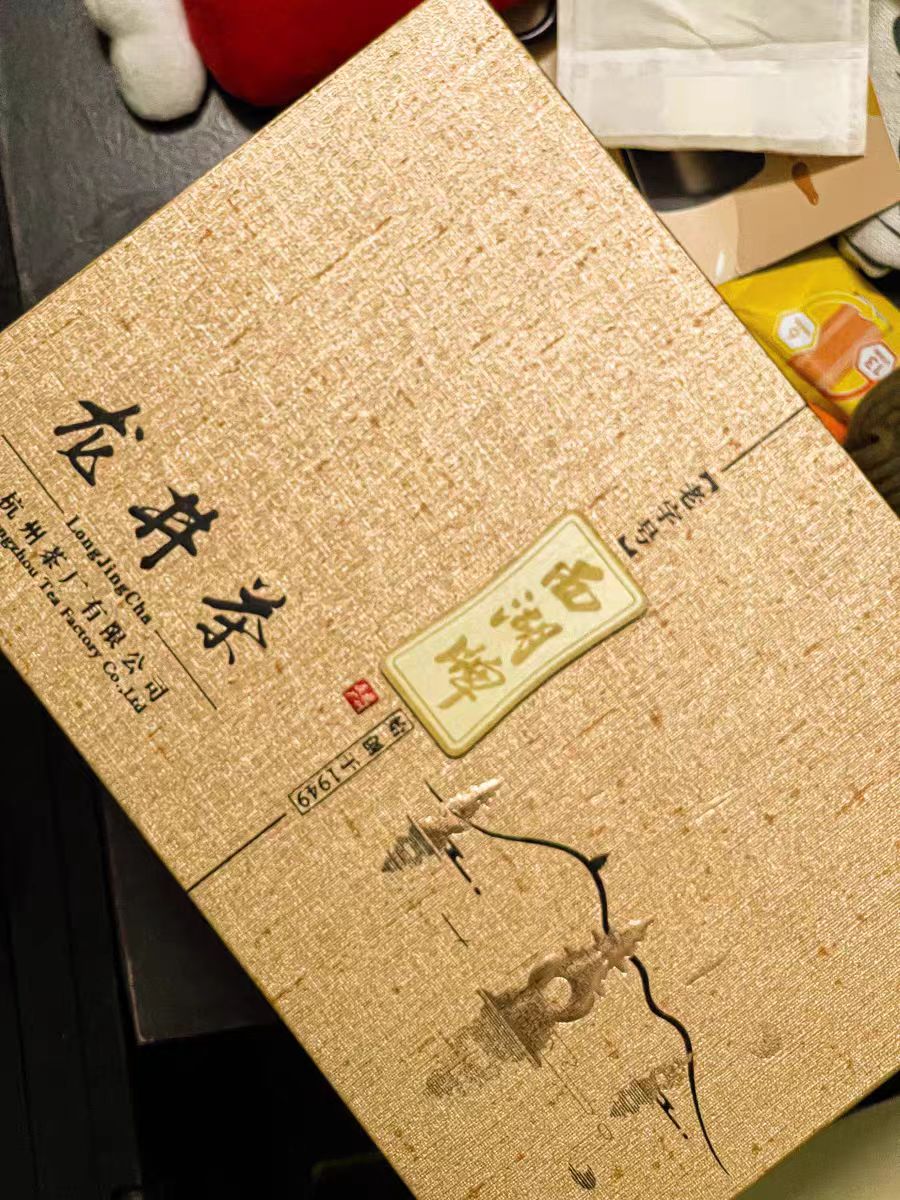 【老字号】
西湖牌
始创于1949
龙井茶
LongJingCha
杭州茶厂有限公司
ngzhou Tea Factory Co.,Ltd